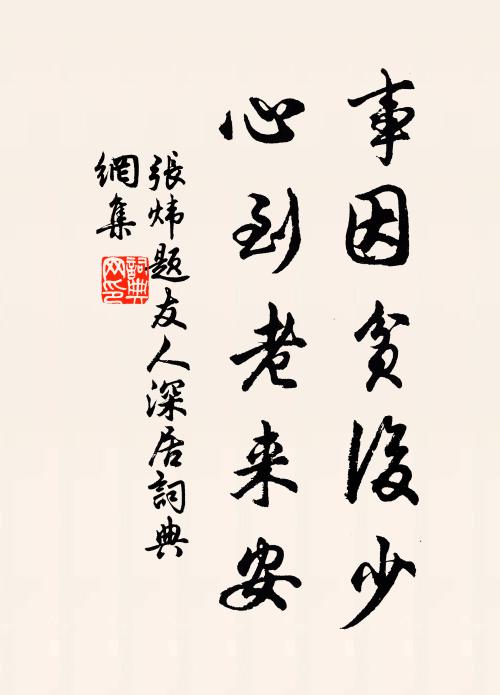 事因貧後少
心到老来安
張煒題友人深居詞典
網集
詞典
网印